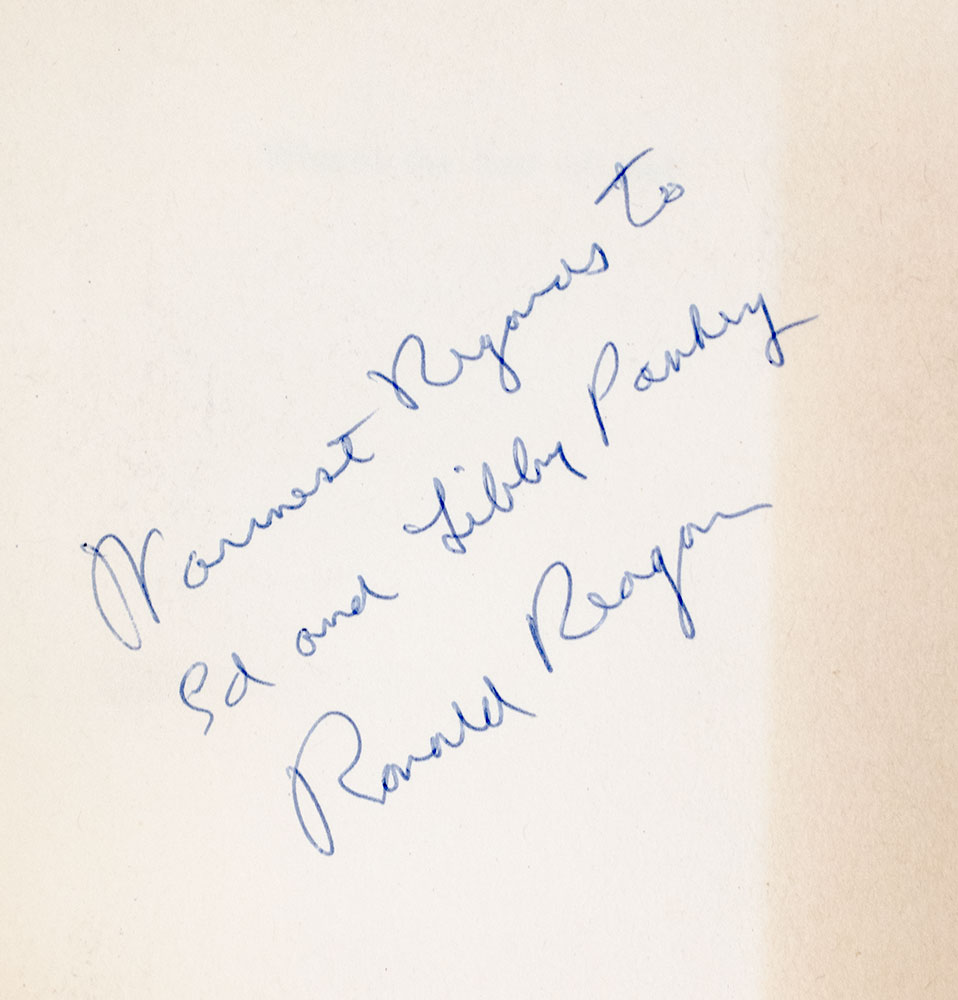 Warmest Regards to
Ed and Libby Pankey
Ronald Reagan